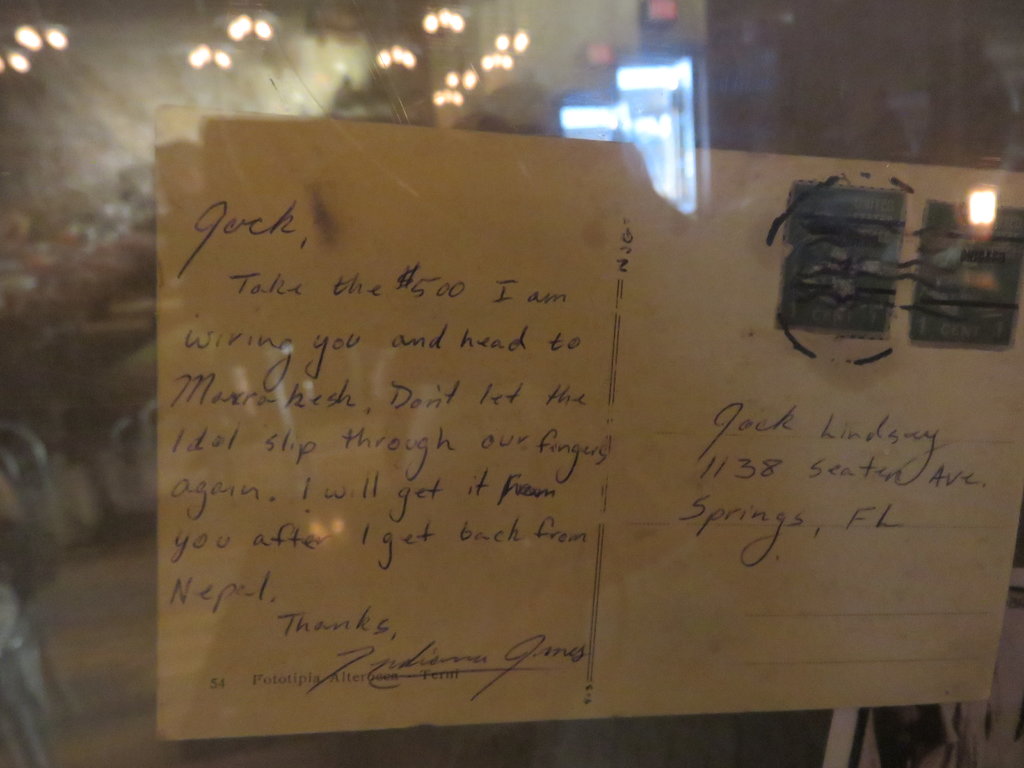 Jock,
Take the $500 I am
wiring you and head to
Marrakesh. Don't let the
Idol slip through our fingers
again. I will get it from
you after I get back from
Nepal.
Thanks,
Indiana Jones
54 Fototipia Alterocca - Terni
Jock Lindsay
1138 Seaten Ave.
Springs, FL
1 CENT 1
1 CENT